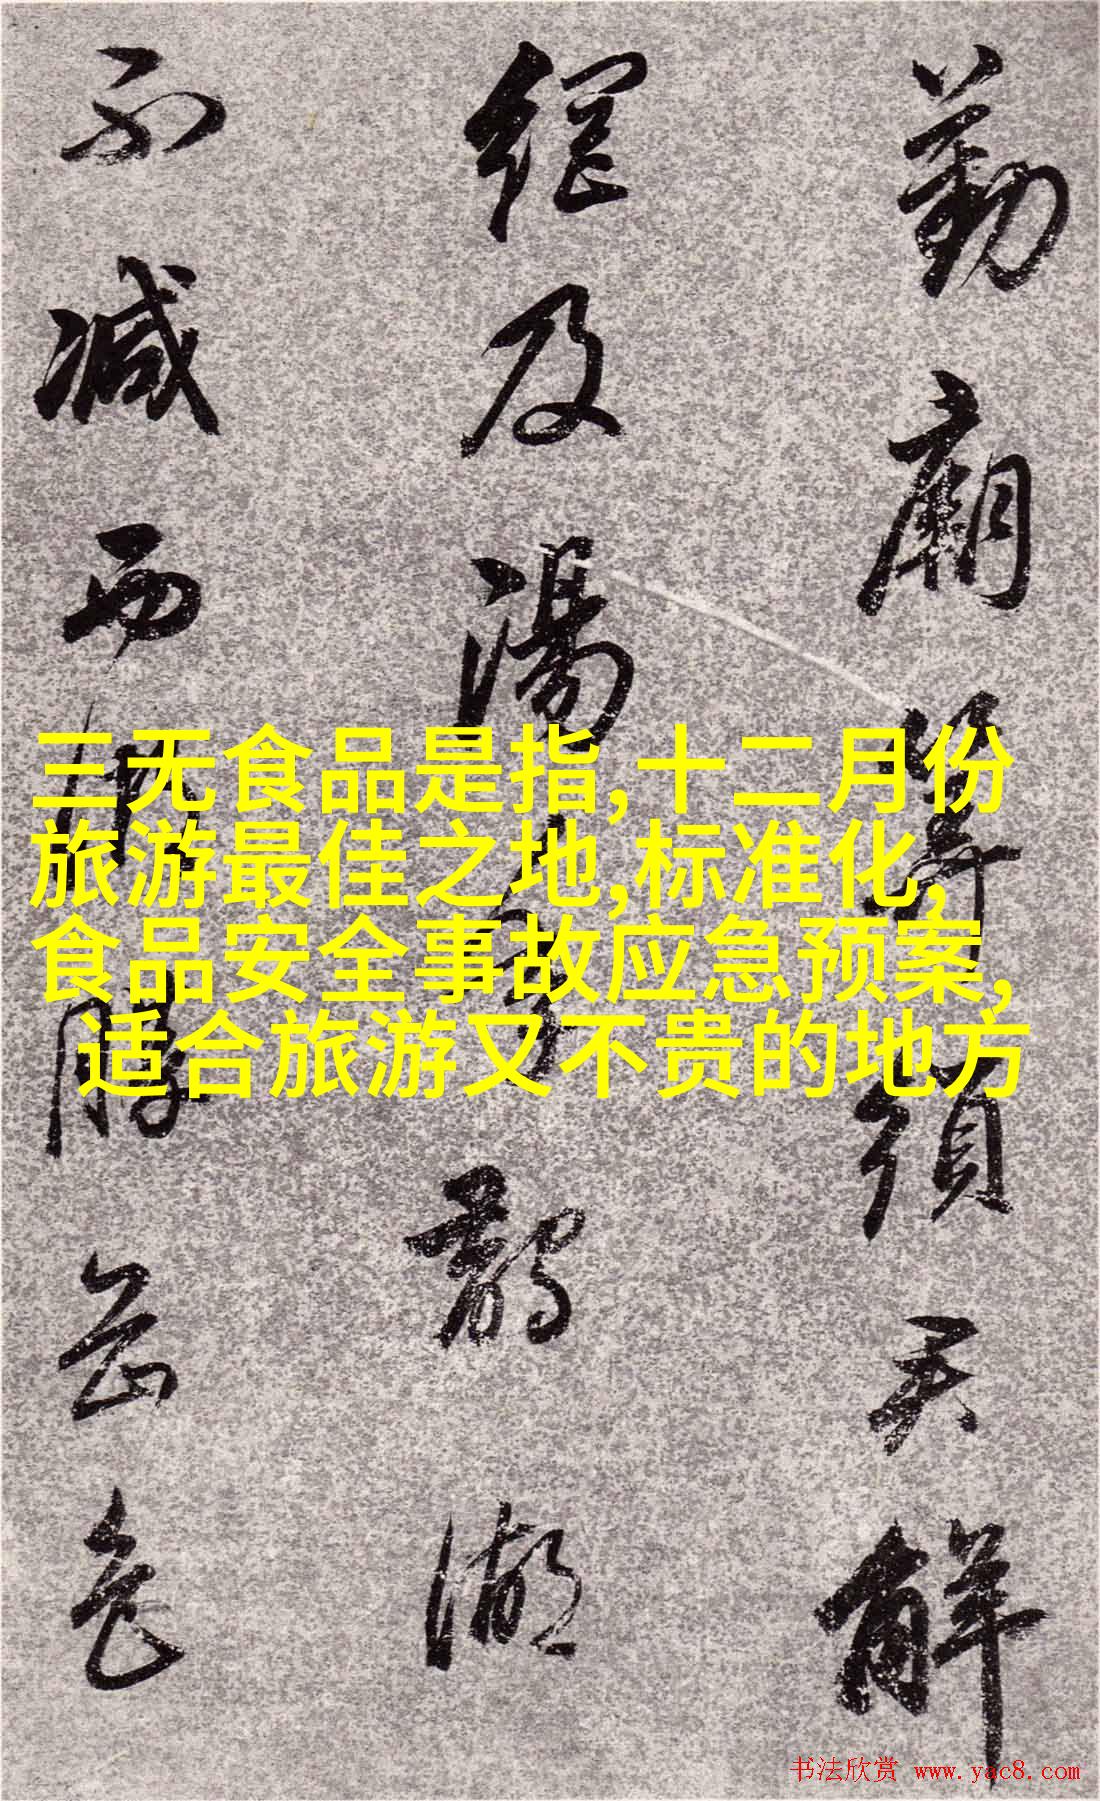 勤廟算須天解
網及湯
鵲湖
不減西
勝
色
三无食品是指,十二月份
旅游最佳之地,标准化,
食品安全事故应急预案,
适合旅游又不贵的地方
书法欣赏 www.yac8.com